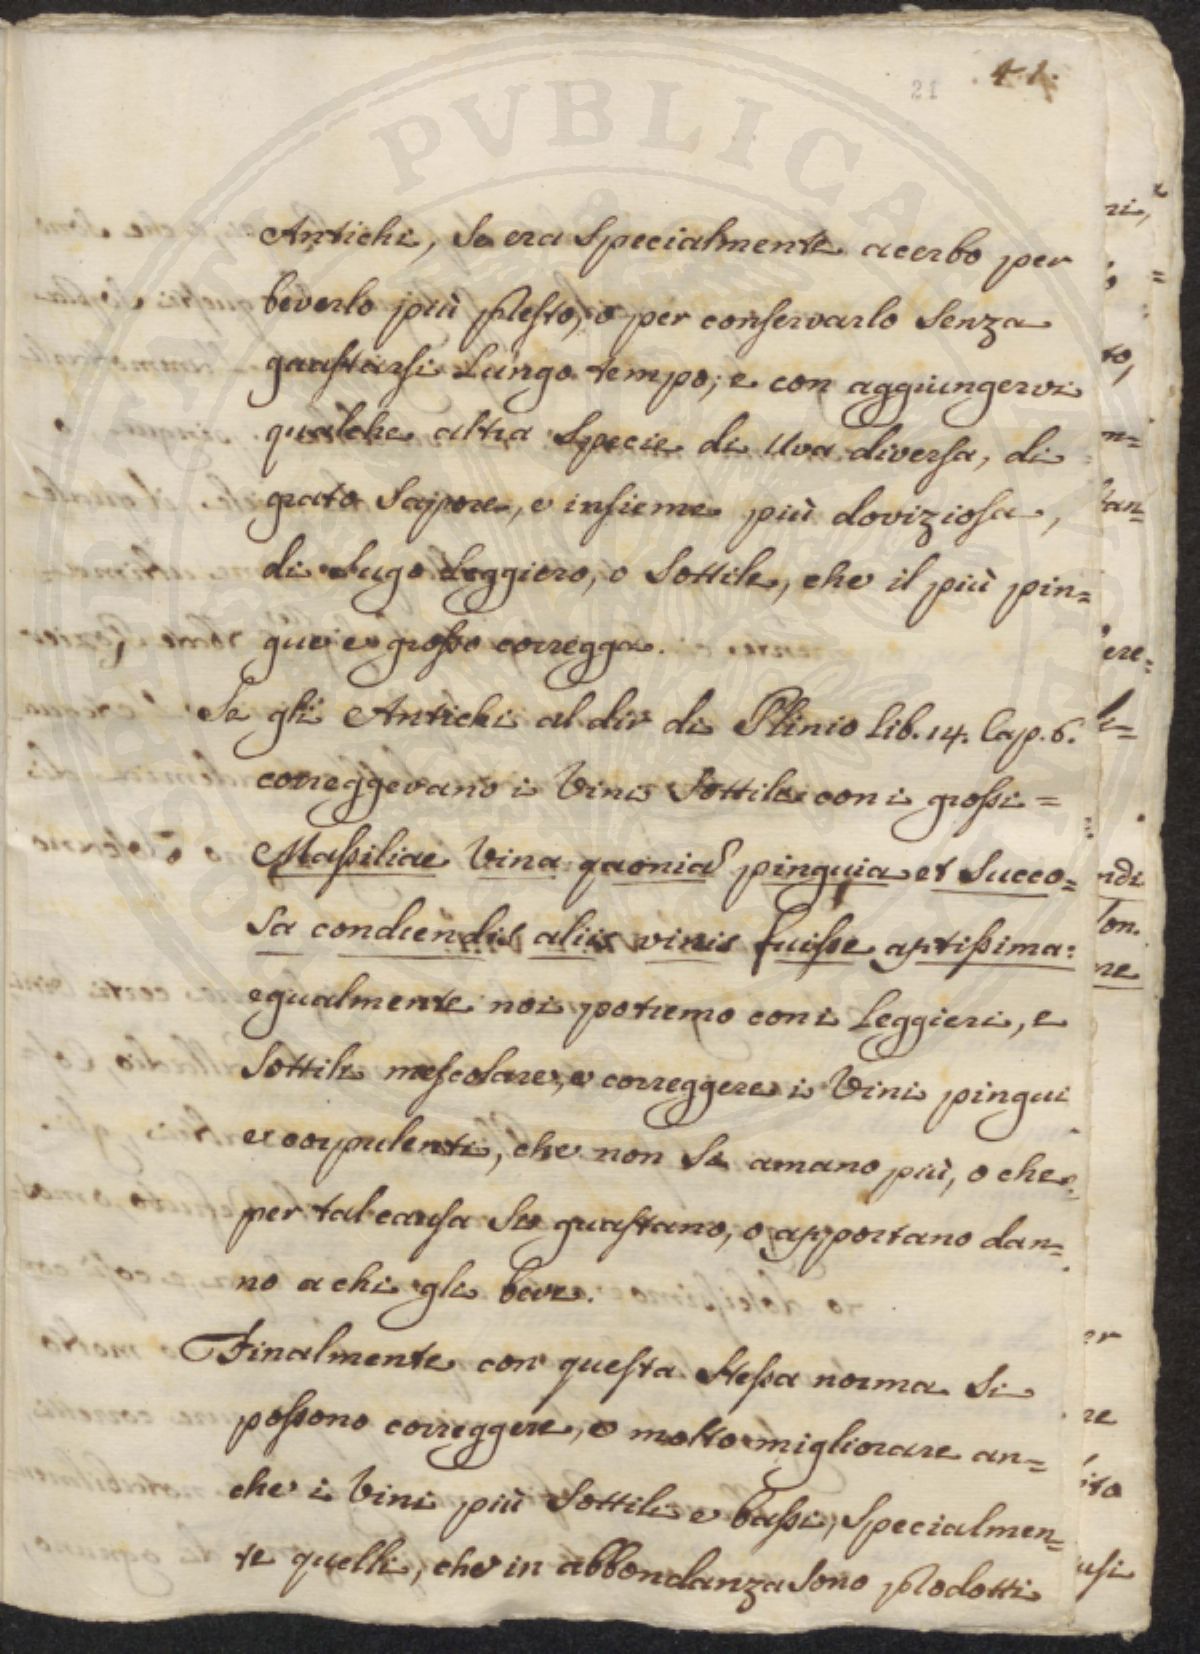 41.
21
Antichi, se era specialmente acerbo per
beverlo più presto, o per conservarlo senza
guastarsi lungo tempo; e con aggiungervi
qualche altra specie di Uva diversa, di
grato sapore, e insieme più doviziosa,
di sugo leggiero, o sottile, che il più pin=
gue e grosso corregga.
Se gli Antichi al dir di Plinio Lib. 14. Cap. 6.
correggevano i Vini sottili con i grossi =
Massiliae Vina quonia pinguia et succo=
sa condiendis aliis vinis fuisse aptissima:
egualmente noi potremo con i leggieri, e
sottili mescolare, e correggere i Vini pingui
e corpulenti, che non si amano più, o che
per tal causa si guastano, o apportano dan=
no a chi gli beve.
Finalmente con questa stessa norma si
possono correggere, e molto migliorare an=
che i Vini più sottili e bassi, specialmen=
te quelli, che in abbondanza sono prodotti